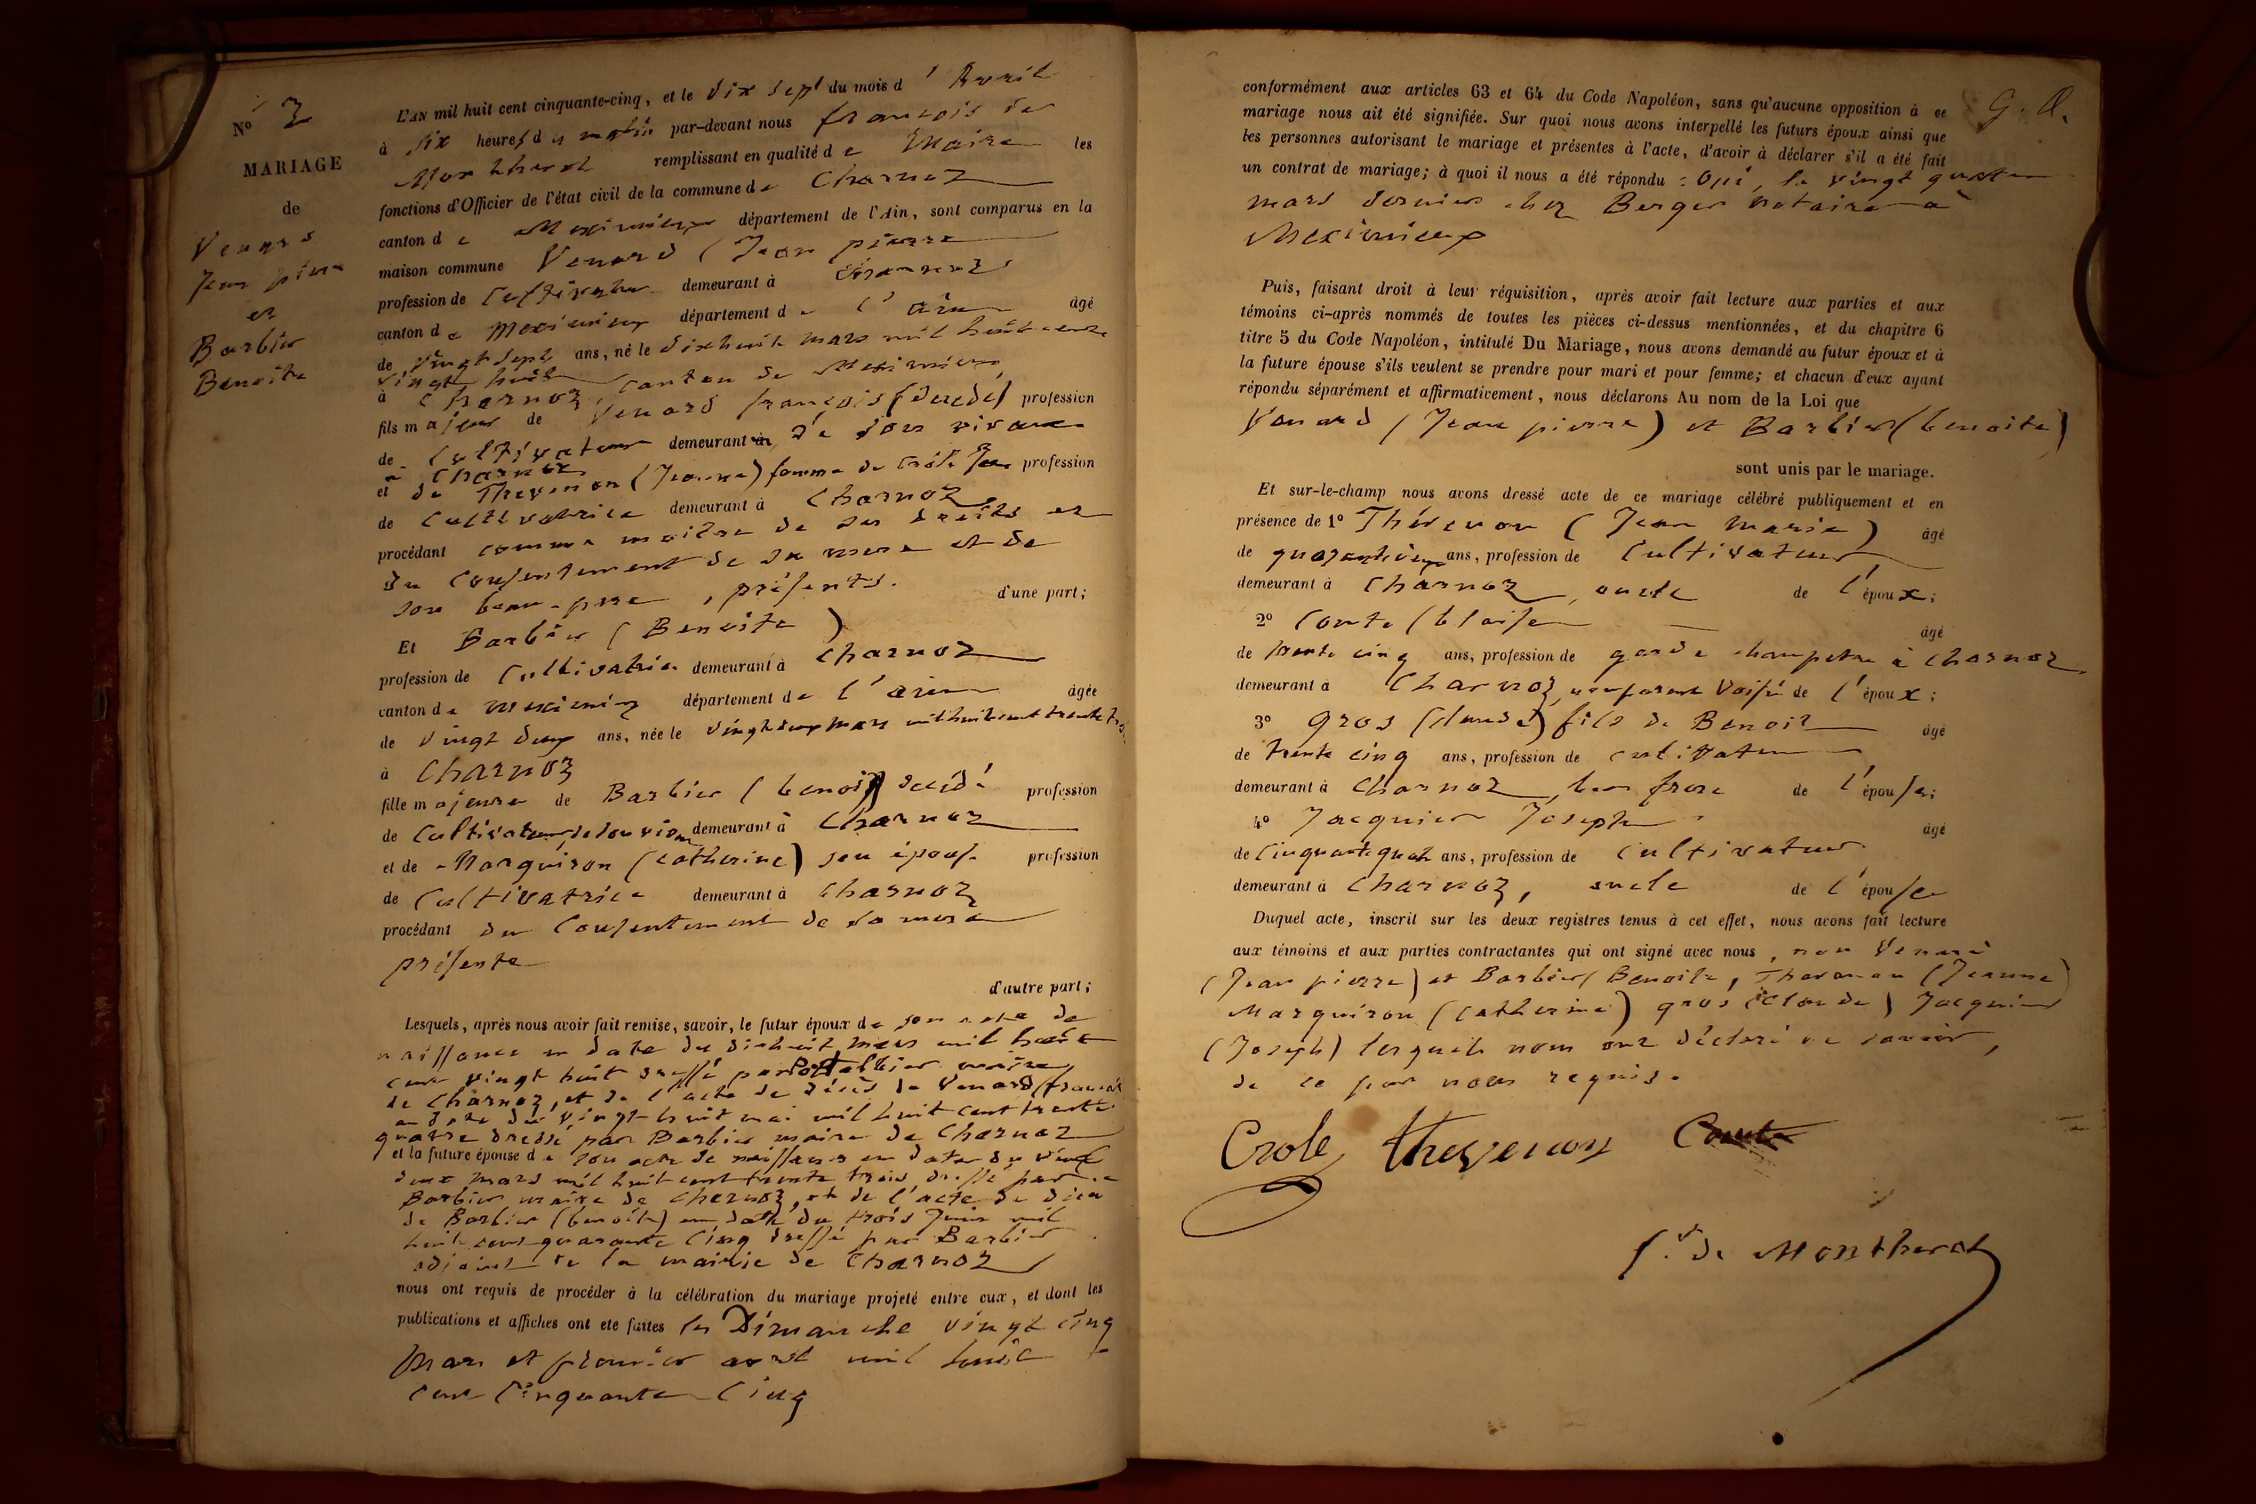 N° 3
MARIAGE
de
Venard
Jean pierre
et
Barbier
Benoite
L'AN mil huit cent cinquante-cinq, et le dix sept du mois d'Avril
à dix heures du matin par-devant nous françois de
Montherot remplissant en qualité de Maire les
fonctions d'Officier de l'état civil de la commune de Charnoz
canton de Meximieux département de l'Ain, sont comparus en la
maison commune Venard (Jean pierre
profession de Cultivateur demeurant à Charnoz
canton de Meximieux département de l'ain âgé
de vingt sept ans, né le dixhuit mars mil huit cent
vingt huit
à Charnoz, canton de Meximieux
fils majeur de Venard françois (décédé) profession
de Cultivateur demeurant de son vivant
à Charnoz
et de Thevenon (Jeanne) femme de Crole profession
de Cultivatrice demeurant à Charnoz
procédant comme maitre de ses droits et
du Consentement de sa mere et de
son beau-pere, présents. d'une part;
Et Barbier (Benoite)
profession de Cultivatrice demeurant à Charnoz
canton de meximieux département de l'ain âgée
de vingt deux ans, née le vingt deux mars mil huit cent trente trois
à Charnoz
fille majeure de Barbier (benoit) décédé profession
de Cultivateur, de son vivant demeurant à Charnoz
et de Marguiron (Catherine) son épouse profession
de Cultivatrice demeurant à Charnoz
procédant du Consentement de sa mere
présente
d'autre part;
Lesquels, après nous avoir fait remise, savoir, le futur époux de son acte de
naissance en date du dixhuit mars mil huit
cent vingt huit dressé par maire
de Charnoz, et de l'acte de décès de Venard françois
en date du vingt huit mai mil huit cent trente
quatre dressé par Barbier maire de Charnoz
et la future épouse de son acte de naissance en date du vingt
deux mars mil huit cent trente trois, dressé par
Barbier maire de Charnoz, et de l'acte de décès
de Barbier (benoit) en date du trois Juin mil
huit cent quarante Cinq dressé par Barbier
adjoint de la mairie de Charnoz
nous ont requis de procéder à la célébration du mariage projeté entre eux, et dont les
publications et affiches ont été faites les Dimanche vingt cinq
Mars et premier avril mil huit
cent Cinquante Cinq
G. A.
conformément aux articles 63 et 64 du Code Napoléon, sans qu'aucune opposition à ce
mariage nous ait été signifiée. Sur quoi nous avons interpellé les futurs époux ainsi que
les personnes autorisant le mariage et présentes à l'acte, d'avoir à déclarer s'il a été fait
un contrat de mariage; à quoi il nous a été répondu : Oui, le vingt quatre
mars dernier chez Berger notaire à
Meximieux
Puis, faisant droit à leur réquisition, après avoir fait lecture aux parties et aux
témoins ci-après nommés de toutes les pièces ci-dessus mentionnées, et du chapitre 6
titre 5 du Code Napoléon, intitulé Du Mariage, nous avons demandé au futur époux et à
la future épouse s'ils veulent se prendre pour mari et pour femme; et chacun d'eux ayant
répondu séparément et affirmativement, nous déclarons Au nom de la Loi que
Venard (Jean pierre) et Barbier (benoite)
sont unis par le mariage.
Et sur-le-champ nous avons dressé acte de ce mariage célébré publiquement et en
présence de 1° Thévenon (Jean Marie) âgé
de quarante deux ans, profession de Cultivateur
demeurant à Charnoz, oncle de l'époux;
2° Conte (blaise âgé
de trente cinq ans, profession de garde champetre à Charnoz
demeurant à Charnoz, non parent Voisin de l'époux;
3° Gros (claude) fils de Benoit âgé
de trente cinq ans, profession de cultivateur
demeurant à Charnoz, beau frere de l'épouse;
4° Jacquier Joseph âgé
de Cinquante quatre ans, profession de Cultivateur
demeurant à Charnoz, oncle de l'épouse
Duquel acte, inscrit sur les deux registres tenus à cet effet, nous avons fait lecture
aux témoins et aux parties contractantes qui ont signé avec nous, non Venard
(Jean pierre) et Barbier (Benoite, Thevenon (Jeanne)
Marguiron (Catherine) gros (Claude) Jacquier
(Joseph) lesquels nous ont déclaré ne savoir,
de ce par nous requis.
Crole Thevenon Conte
f. de Montherot